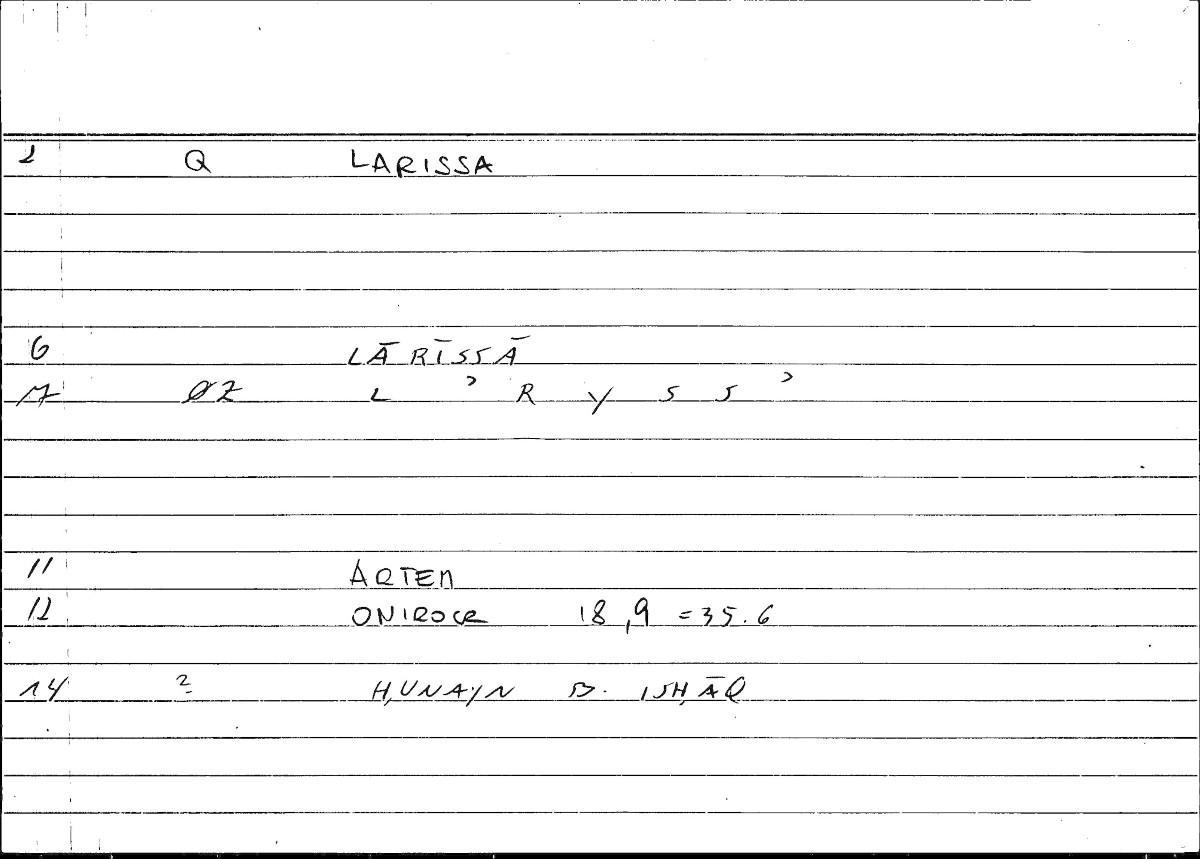 1 Q LARISSA
6 LĀRĪSSĀ
17 ØZ L ʾ R Y S S ʾ
11 ARTEM
12 ONIROCR 18,9 = 35.6
14 2 H,UNAYN B. ISH,ĀQ